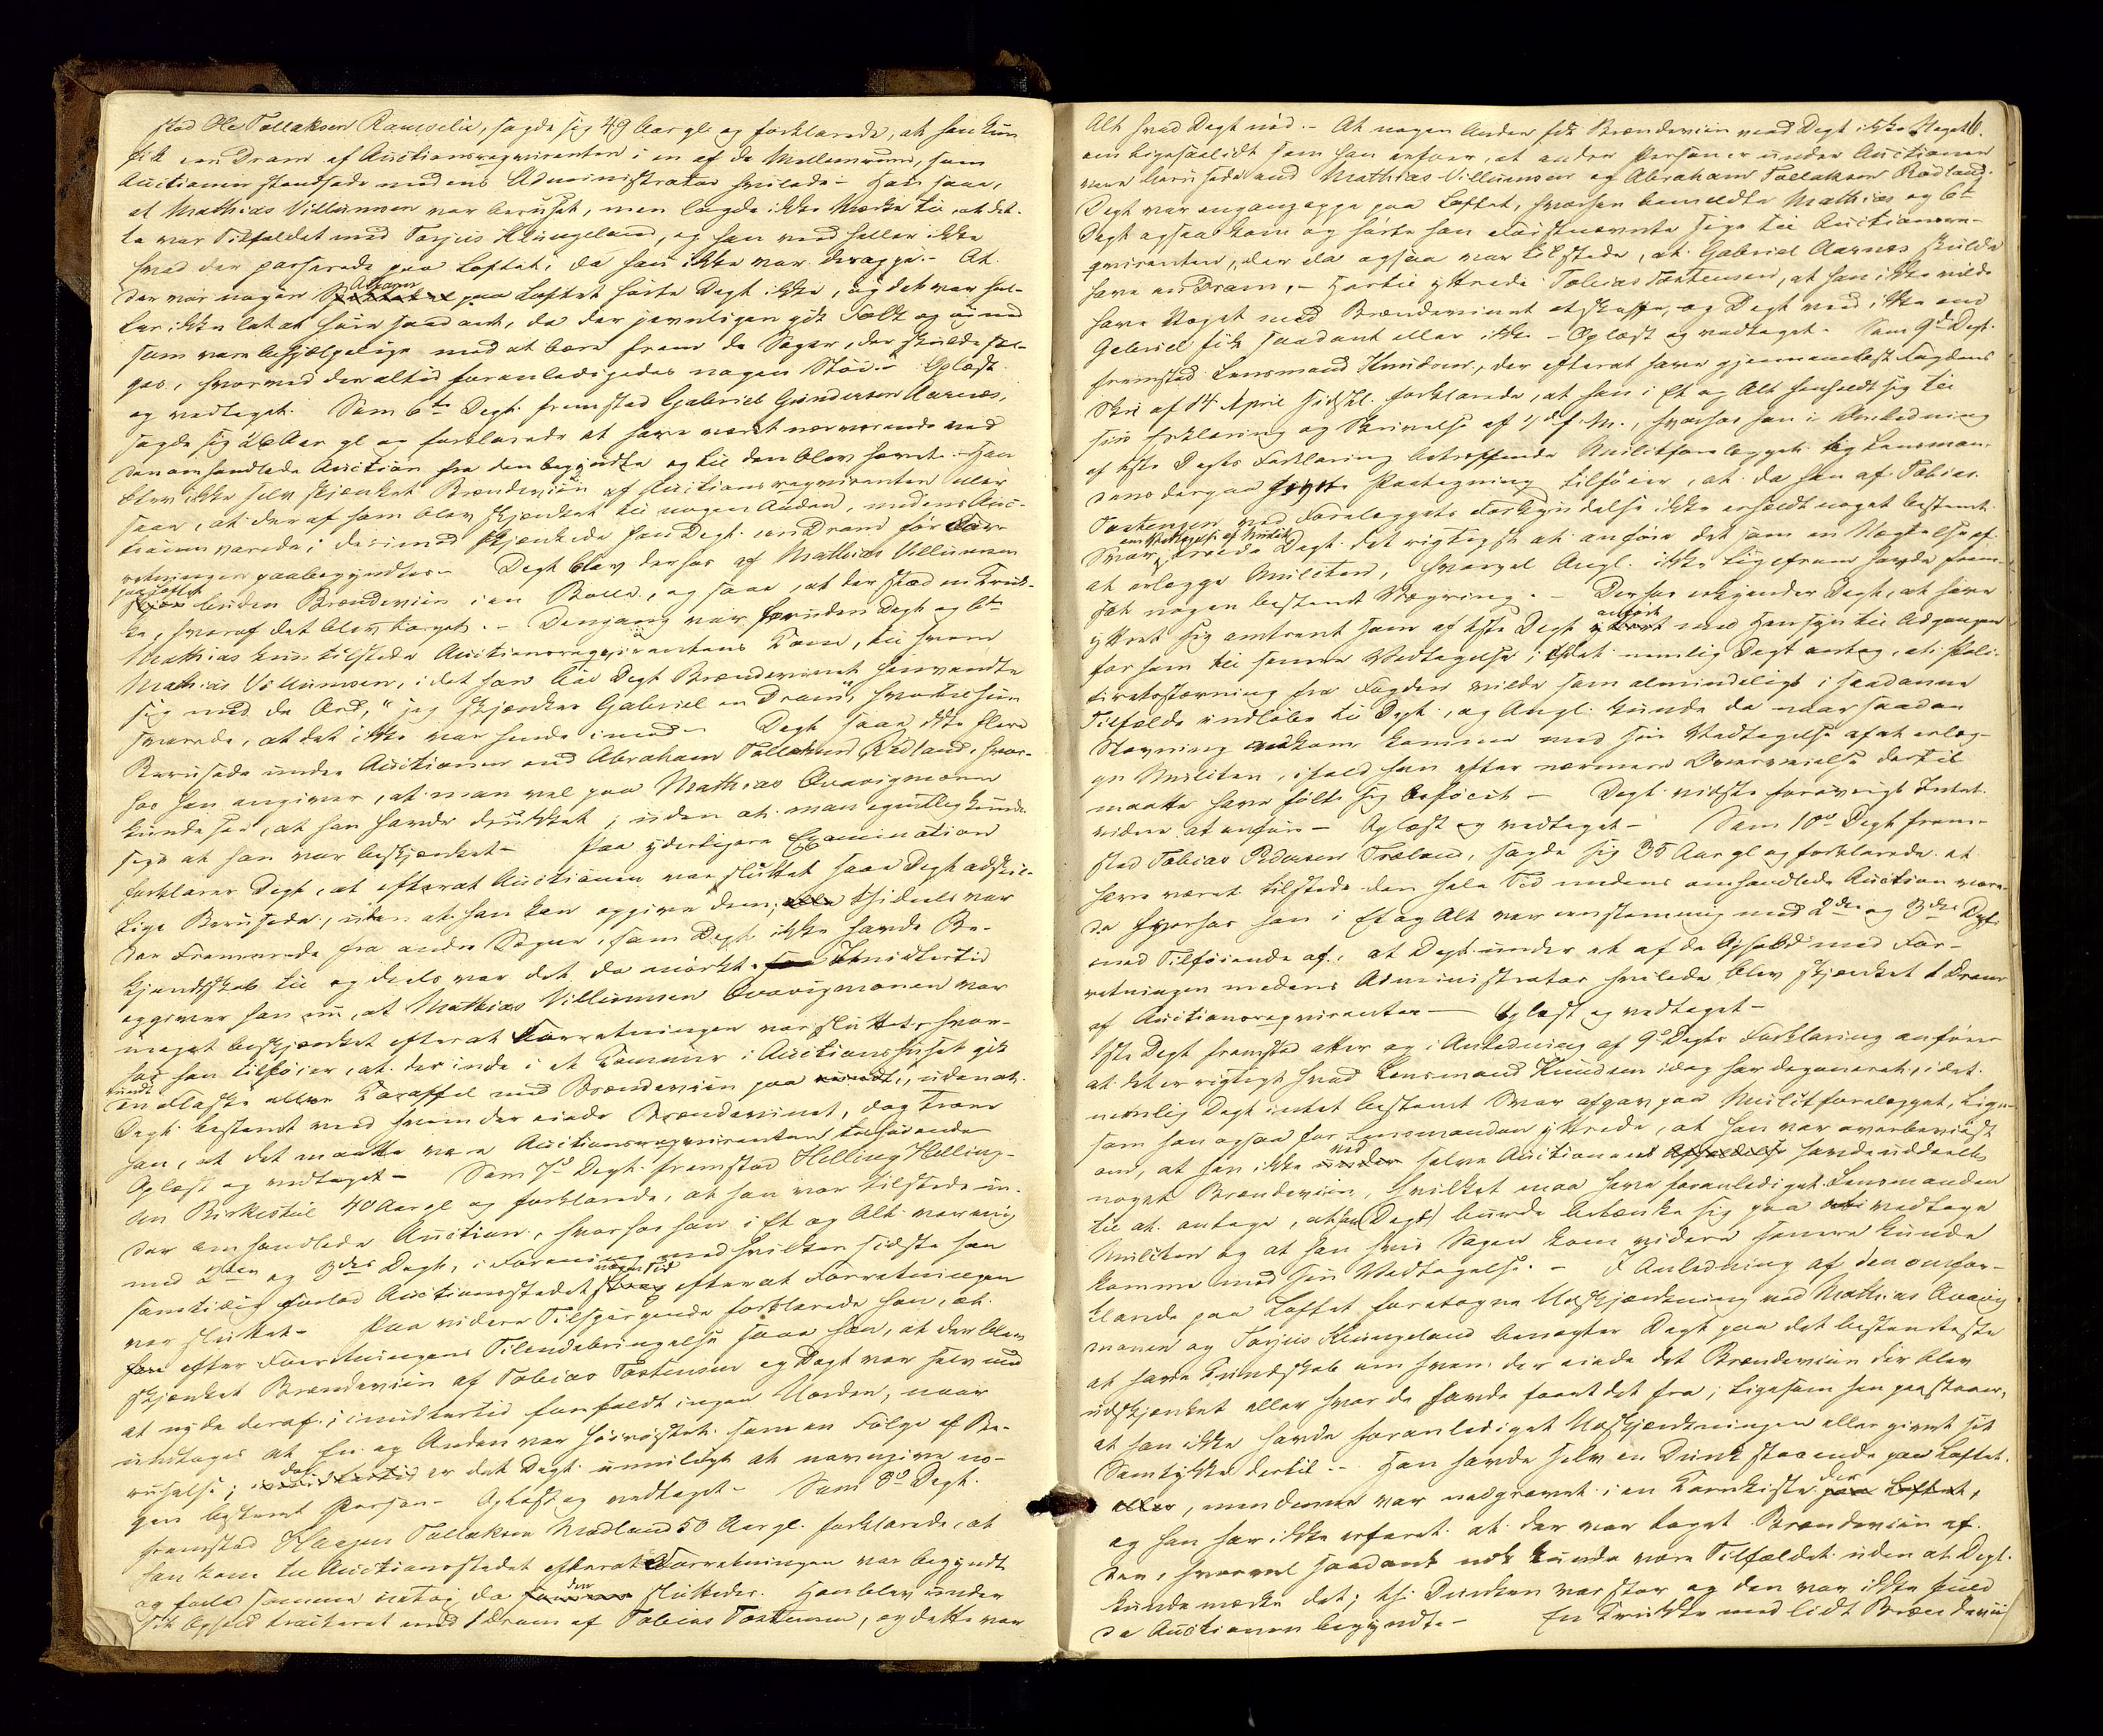 stod Ole Tollaksen Ramselie, sagde sig 49 Aar gl. og forklarede, at han kun
fik een Dram af Auctionsreqvirenten i en af de Mellemrum, som
Auctionen standsede medens Administrator hvilede – Han saae,
at Mathias Villumsen var beruset, men lagde ikke Mærke til, at det-
te var Tilfældet med Torjus Klungeland, og han veed heller ikke
hvad der passerede paa Loftet, da han ikke var deroppe. – At
der var nogen Alarm paa Loftet hørte Dept ikke, og det var hel-
ler ikke let at høre saadant, da der jævnligen gik Folk op og ned
som vare behjælpelige med at bære frem de Sager, der skulde sæl-
ges, hvorved der altid foranledigedes nogen Støi. – Oplæst
og vedtaget. Som 6te Dept. fremstod Gabriel Gundersen Aarnes,
sagde sig 26 Aar gl og forklarede at have været nærværende ved
den omhandlede Auction fra den begyndte og til den blev hævet. – Han
blev ikke selv skjænket Brændeviin af Auctionsreqvirenten eller
saae, at deraf som blev skjænket til nogen Anden, medens Auc-
tionen varede; derimod skjænkede han Dept. een Dram før For-
retningen paabegyndtes – Dept blev derhos af Mathias Villumsen
paa Loftet buden Brændeviin i en Bolle, og saae, at der stod en Kruk-
ke, hvoraf det blev taget. – Dengang var foruden Dept og bte
Mathias kun tilstede Auctionsreqvirentens Kone, til hvem
Mathias Villumsen, idet han bød Dept Brændevinet henvendte
sig med de Ord, "jeg skjænker Gabriel en Dram", hvortil hun
svarede, at det ikke var hende imod – Dept saae ikke flere
Berusede under Auctionen end Abraham Tollaksen Rødland, hvor-
hos han angiver, at man vel paa Mathias Qvavigmonen
kunde see, at han havde drukket, uden at man egentlig kunde
sige at han var beskjænket – Paa yderligere Examination
forklarer Dept, at efterat Auctionen var sluttet saae Dept adskil-
lige Berusede, uden at han kan opgive dem, thi deels var
der Fremmede fra andre Sogne, som Dept ikke havde Be-
kjendtskab til og deels var det da mørkt. Imidlertid
opgiver han nu, at Mathias Villumsen Qvavigmonen var
meget beskjænket efterat Forretningen var sluttet, hvor-
hos han tilføier, at der inde i et Kammer i Auctionshuset gik
rundt en Flaske eller Karaffel med Brændeviin, uden at
Dept. bestemt veed hvem der eiede Brændevinet, dog troer
han, at det maatte være Auctionsreqvirenten tilhørende
Oplæst og vedtaget – Som 7d Dept. fremstod Helling Helling-
sen Birkestøl 40 Aar gl og forklarede, at han var tilstede un-
der omhandlede Auction, hvorhos han i Et og Alt var enig
med 2den og 3die Dept, i Forening med hvilken sidste han
samtidig forlod Auctionsstedet nogen Tid efterat Forretningen
var sluttet – Paa videre Tilspørgende forklarede han, at
efter Forretningens Tilendebringelse saae han, at der blev
skjænket Brændeviin af Tobias Tostensen og Dept var selv med
at nyde deraf; imidlertid forefaldt ingen Uorden, naar
undtages at En og Anden var høirøstet som en Følge af Be-
ruselse; dog er det Dept. umuligt at navngive no-
gen bestemt Person – Oplæst og vedtaget – Som 8d Dept.
fremstod Haagen Tollaksen Modland 50 Aar gl. forklarede, at
han kom til Auctionsstedet efterat Forretningen var begyndt
og forlod samme netop da den sluttedes. Han blev under
sit Ophold tracteret med 1 Dram af Tobias Tostensen, og dette var
6.
Alt hvad Dept nød. – At nogen Anden fik Brændeviin veed Dept ikke Noget
om ligesaalidt som han erfoer, at andre Personer under Auctionen
vare berusede end Mathias Villumsen og Abraham Tollaksen Rødland.
Dept var engang oppe paa Loftet, hvorhen bemeldte Mathias og 6te
Dept ogsaa kom og hørte han sidstnævnte sige til Auctionsre-
qvirenten, der da ogsaa var tilstede, at Gabriel Aarnes skulde
have en Dram, – Hertil yttrede Tobias Tostensen, at han ikke vilde
have Noget med Brændevinet at skaffe, og Dept veed ikke om
Gabriel fik saadant eller ikke – Oplæst og vedtaget. Som 9de Dept.
fremstod Lensmand Knudsen, der efterat have gjennemlæst Fogdens
Skr. af 14 April sidstl. forklarede, at han i Et og Alt henholdt sig til
sin Erklæring og Skrivelse af 1/ d. M., hvorhos han i Anledning
af 1ste Depts Forklaring betræffende Mulktforelægget og Lensman-
dens derpaa Paategning tilføier, at da han af Tobias
Tostensen ved Forelæggets Forkyndelse ikke erholdt noget bestemt
Svar om Vedtagelse af Mulcten troede Dept. det rigtigst at anføre det som en Nægtelse af
at erlægge Mulcten, hvorvel Angl. ikke ligefrem havde frem-
sat nogen bestemt Vægring. – Derhos erkjender Dept, at have
yttret sig omtrent som af 1ste Dept anført med Hensyn til Adgangen
for ham til senere Vedtagelse; idet nemlig Dept antog, at Poli-
tiretsstævning fra Fogden vilde som almindeligt i saadanne
Tilfælde indløbe til Dept, og Angl. kunde da naar saadan
Stævning ankom komme med sin Vedtagelse af at erlæg-
ge Mulcten, ifald han efter nærmere Overveielse dertil
maatte have følt sig beføiet – Dept vidste forøvrigt Intet
videre at anføre – Oplæst og vedtaget – Som 10de Dept frem-
stod Tobias Pedersen Træland, sagde sig 35 Aar gl og forklarede at
have været tilstede den hele Tid medens omhandlede Auction vare-
de hvorhos han i Et og Alt var eenstemmig med 2den og 3die Dept
med Tilføiende af, at Dept under et af de Ophold med For-
retningen medens Administrator hvilede blev skjænket 1 Dram
af Auctionsreqvirenten – Oplæst og vedtaget –
1ste Dept fremstod atter og i Anledning af 9d Depts Forklaring anfører
at det er rigtigt hvad Lensmand Knudsen idag har deponeret, idet
nemlig Dept intet bestemt Svar afgav paa Mulktforelægget, lige-
som han ogsaa for Lensmanden yttrede, at han var overbeviist
om, at han ikke ved selve Auctionen havde uddeelt
noget Brændeviin, hvilket maa have foranlediget Lensmanden
til at antage, at han (Dept) burde betænke sig paa at vedtage
Mulcten og at han hvis Sagen kom videre senere kunde
komme med sin Vedtagelse. – I Anledning af den omfor-
klarede paa Loftet foretagne Udskjænkning ved Mathias Qvavig
monen og Torjus Klungeland benægter Dept paa det bestemteste
at have Kundskab om hvem der eiede det Brændeviin der blev
udskjænket eller hvor de havde faaet det fra; ligesom han paastaaer,
at han ikke havde foranlediget Udskjænkningen eller givet sit
Samtykke dertil. – Han havde selv en Dunk staaende paa Loftet,
men denne var nedgravet i en Kornkiste der,
og han har ikke erfaret at der var taget Brændeviin af
den, hvorvel saadant nok kunde være Tilfældet uden at Dept.
kunde mærke det; thi Dunken var stor og den var ikke fuld
da Auctionen begyndte – En Krukke med lidt Brændeviin